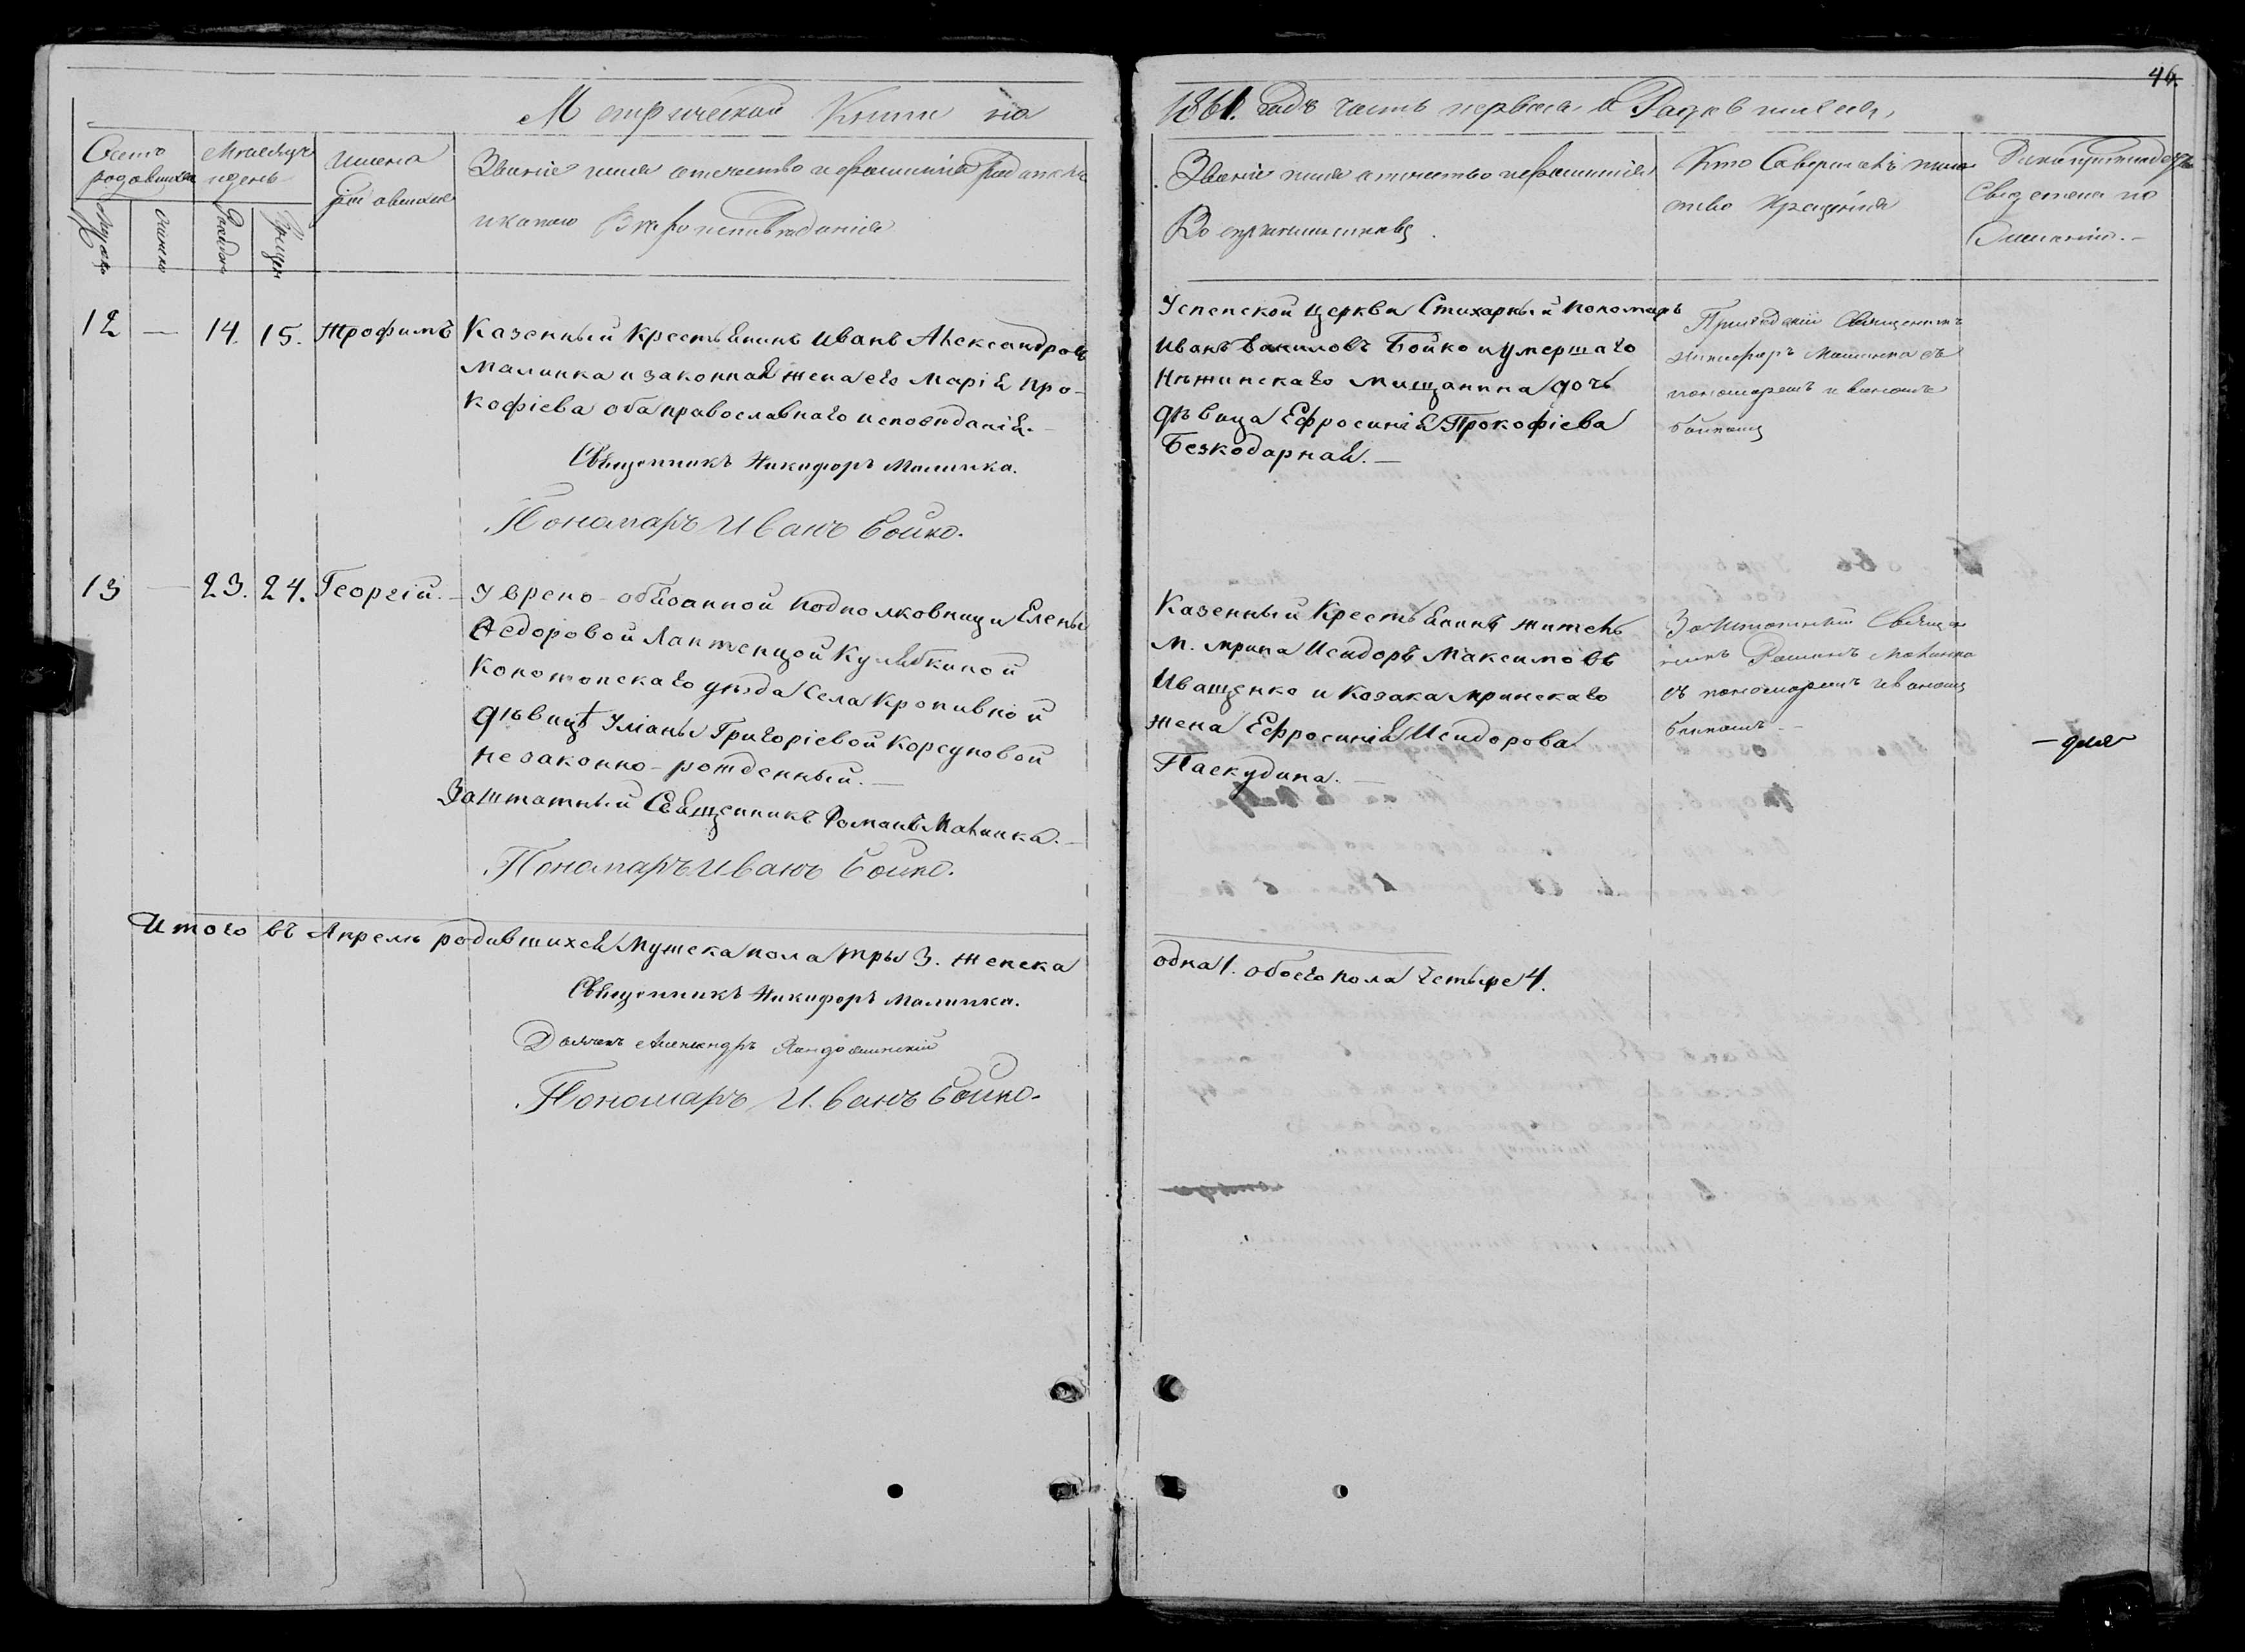 46.
Метрической Книги на
1861. Годъ часть первая о Родившихся,
Счетъ родившихся
Мѣсяцъ и день
Имена родившихся
Званіе имя отчество и фамилія родителей
и какого Вѣроисповѣданія
Званіе имя отчество и фамилія
Воспріемниковъ.
Кто Совершалъ таин-
ство Крещенія
Свидетелей по
желанію.
12 — 14. 15. Трофимъ
Казенный Крестьянинъ Иванъ Александровъ
Малинка и законная жена его Марія Про-
кофіева оба православнаго исповѣданія.—
Священникъ Никифоръ Малинка.
Пономарь Иванъ Бойко.
Успенской Церкви Стихарный Пономарь
Иванъ Бойко и умершаго
Нѣжинскаго мищанина дочь
дѣвица Ефросинія Прокофіева
Безкодарная.—
Приходскій Священникъ
Никифоръ Малинка съ
пономаремъ Иваномъ
Бойкомъ
13 — 23. 24. Георгій.
У врено-обязанной подполковници Елены
Федоровой Лаптевцой Кулябкиной
Конотопскаго уѣзда Села Кропивной
дѣвицѣ Уліаны Григоріевой Корсуновой
незаконно-рожденный.—
Заштатный Священникъ Романъ Малинка.—
Пономарь Иванъ Бойко.
Казенный Крестьянинъ житель
м. Мрина Исидоръ Максимовъ
Иващенко и Козака Мринскаго
жена Ефросинія Исидорова
Паскудина.—
Заштатный Священ-
никъ Романъ Малинка
съ пономаремъ Иваномъ
Бойкомъ.—
Итого въ Апрелѣ родившихся Мужеска пола тры 3. Женска
одна 1. обоего пола Четыре 4.
Священникъ Никифоръ Малинка.
Дьячекъ Александръ
Пономарь Иванъ Бойко.